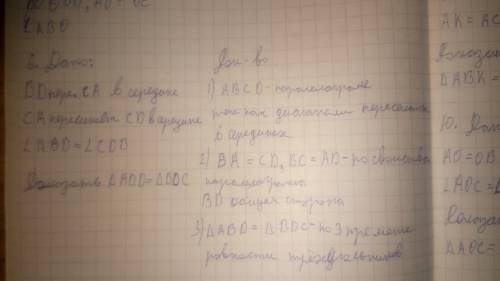 ∠ABO
6. Дано:
BD перес. CA в середине
CA пересекает CD в середине
∠ABD=∠CDB
Доказать
Док-во
1) ABCD - паралелограмм
так как диагонали пересекаются
в серединах
2) BA=CD, BC=AD - по свойству
паралелограмма
BD общая сторона
3) △ABD=△BDC - по 3 признаку
равности треугольников
AK=AC
Доказать
△ABK=
10. Дано
AO=OB
∠AOC=
Доказать
△AOC=